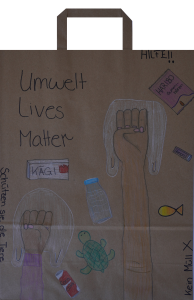 HILFE!!
Umwelt
Lives
Matter
Schützen sie die Tiere
Kein Müll X